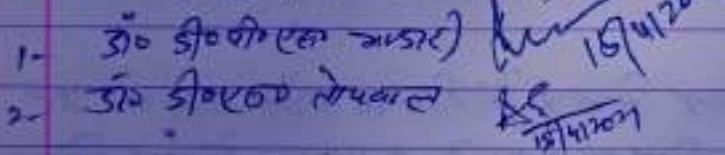 1- डॉ० डी०वी०एस० भण्डारी 15/4/20
2- डॉ० डी०एल० तोपवाल 15/4/2021